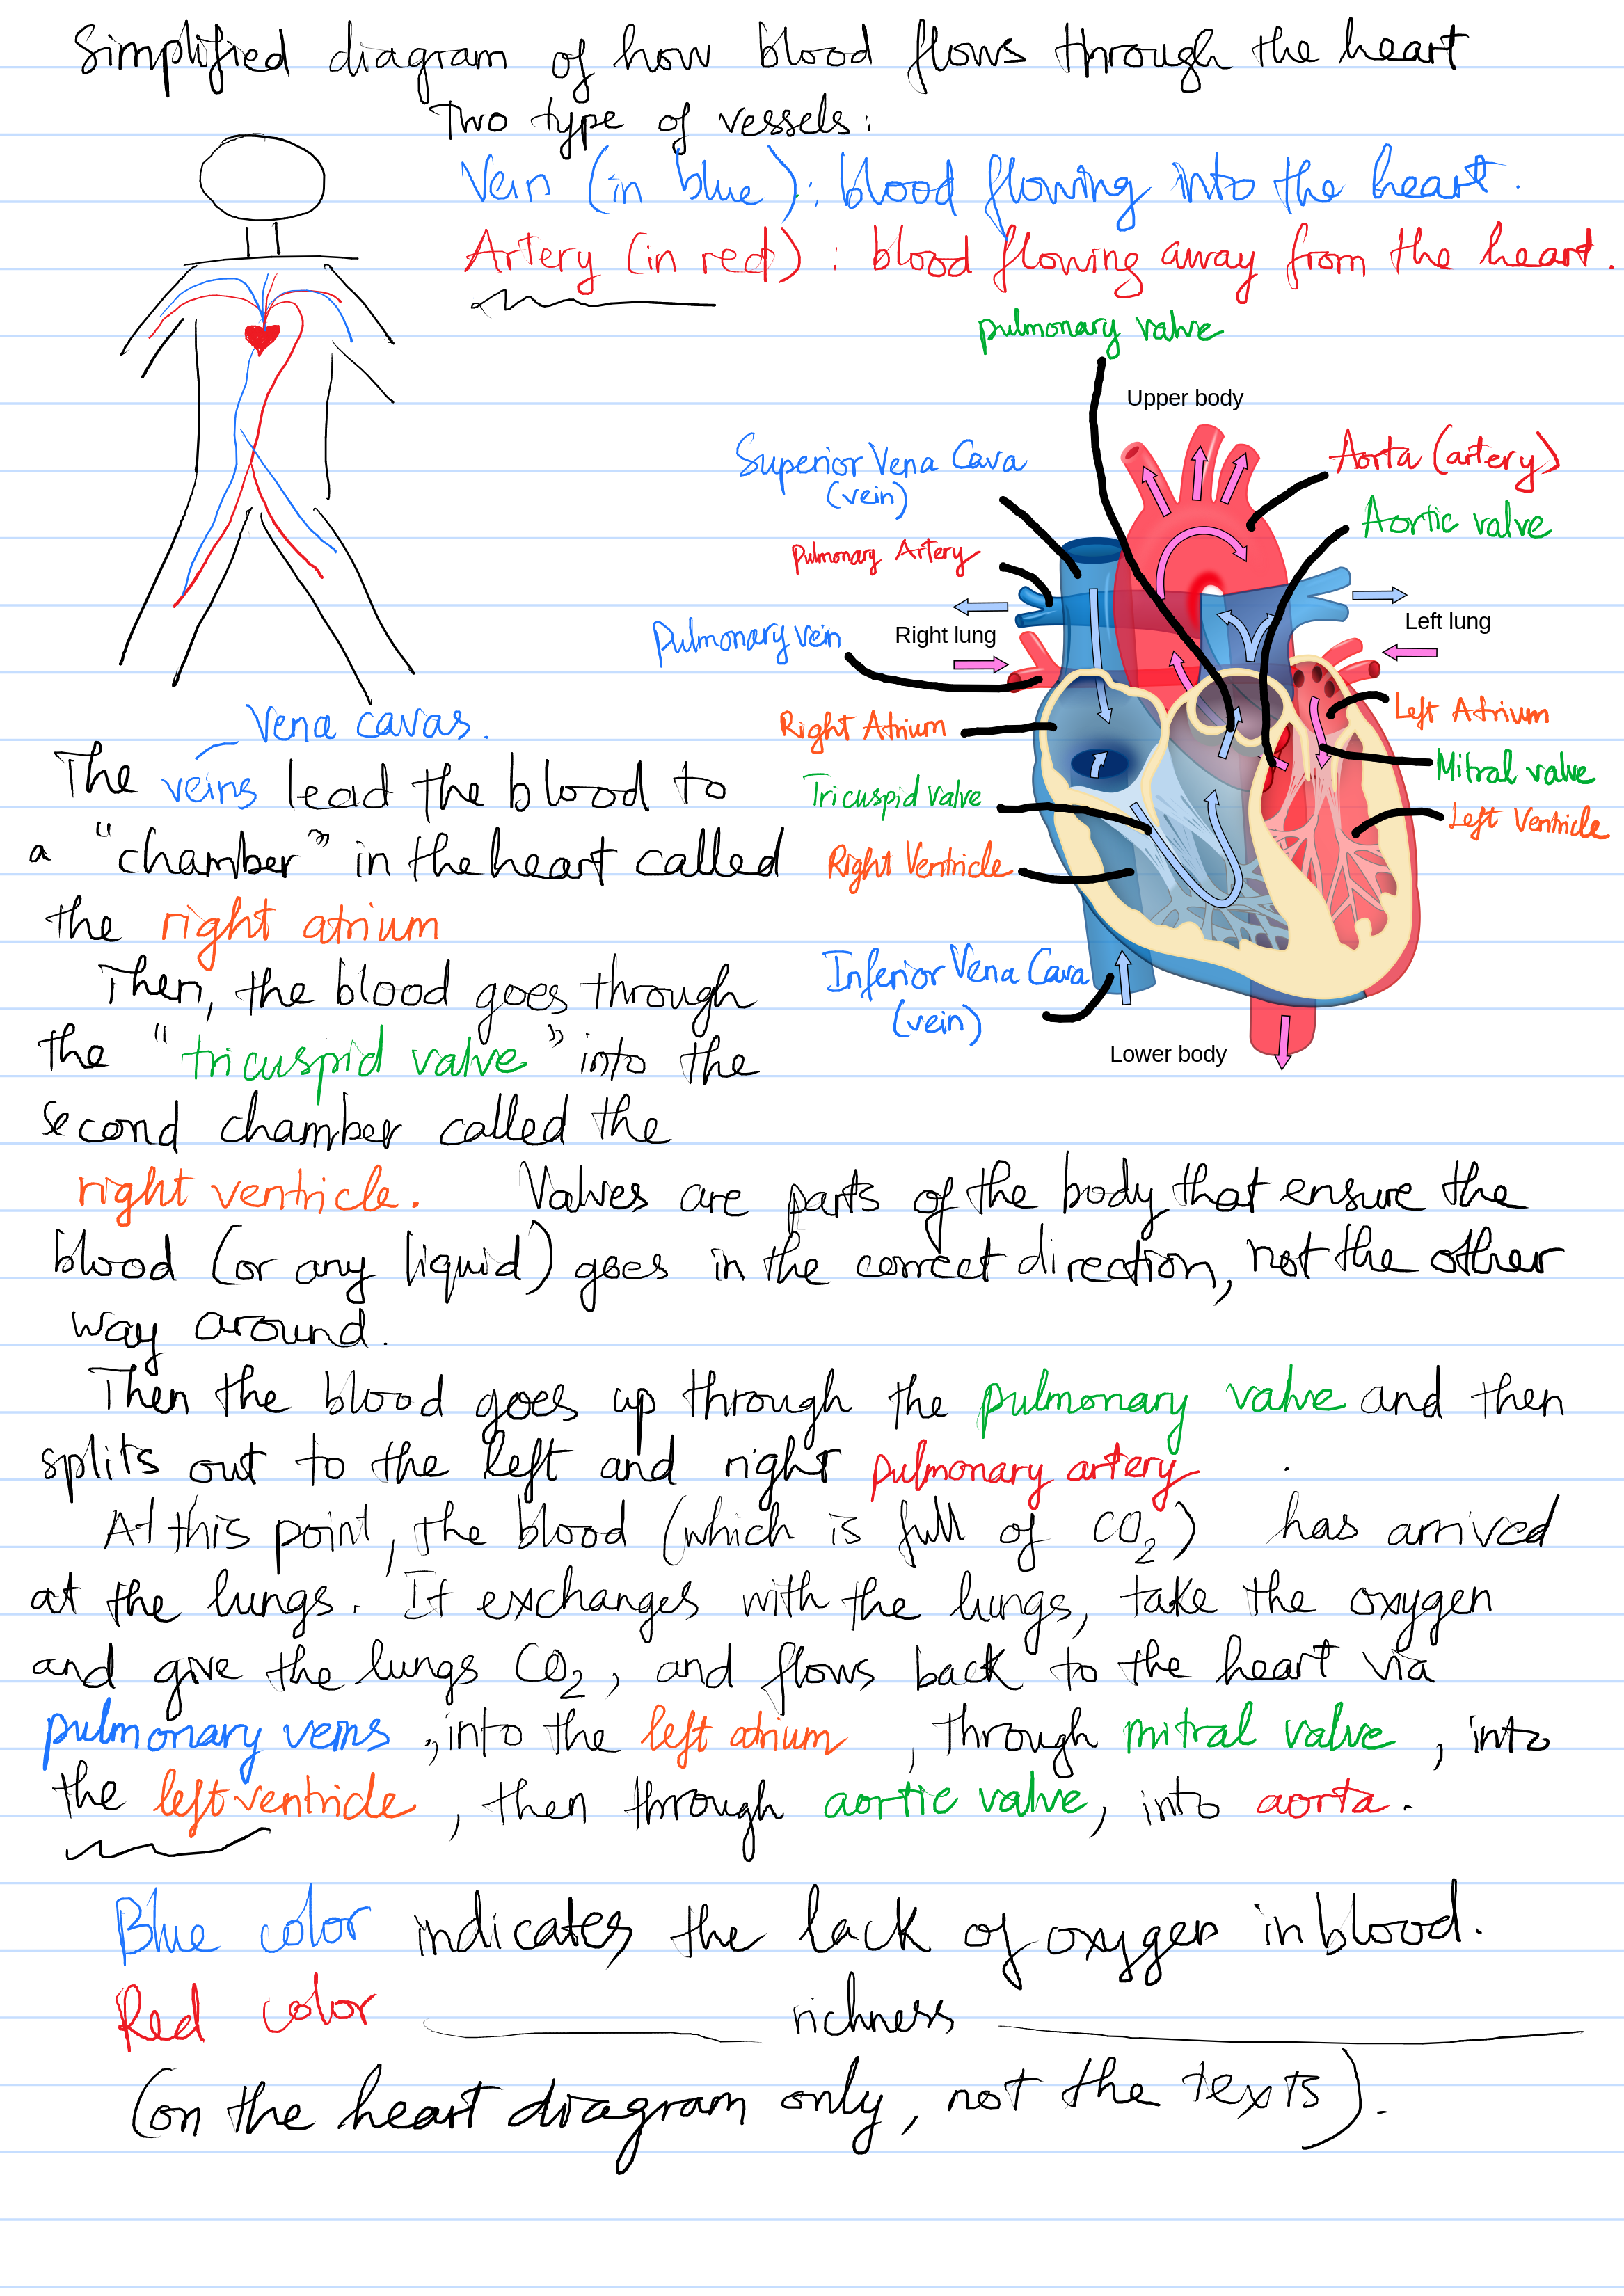 Simplified diagram of how blood flows through the heart
Two type of vessels:
Vein (in blue): blood flowing into the heart.
Artery (in red): blood flowing away from the heart.
pulmonary valve
Upper body
Superior Vena Cava
(vein)
Aorta (artery)
Aortic valve
Pulmonary Artery
Pulmonary vein
Right lung
Left lung
Right Atrium
Left Atrium
Mitral valve
Tricuspid valve
Left Ventricle
Right Ventricle
Inferior Vena Cava
(vein)
Lower body
Vena cavas.
The veins lead the blood to
a "chamber" in the heart called
the right atrium
Then, the blood goes through
the "tricuspid valve" into the
second chamber called the
right ventricle. Valves are parts of the body that ensure the
blood (or any liquid) goes in the correct direction, not the other
way around.
Then the blood goes up through the pulmonary valve and then
splits out to the left and right pulmonary artery.
At this point, the blood (which is full of CO₂) has arrived
at the lungs. It exchanges with the lungs, take the oxygen
and give the lungs CO₂, and flows back to the heart via
pulmonary veins, into the left atrium, through mitral valve, into
the left ventricle, then through aortic valve, into aorta.
Blue color indicates the lack of oxygen in blood.
Red color richness
(on the heart diagram only, not the texts).